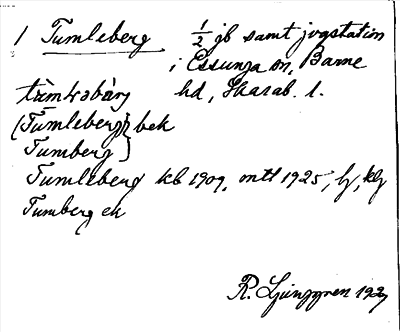 1 Tumleberg ½ jb samt jvgstation
i Essunga sn, Barne
hd, Skarab. l.
(Tumleberg) bek
Tumberg)
Tumleberg kb 1909, mtl 1925, lj, klj
Tumberg ek
R. Ljunggren 1927